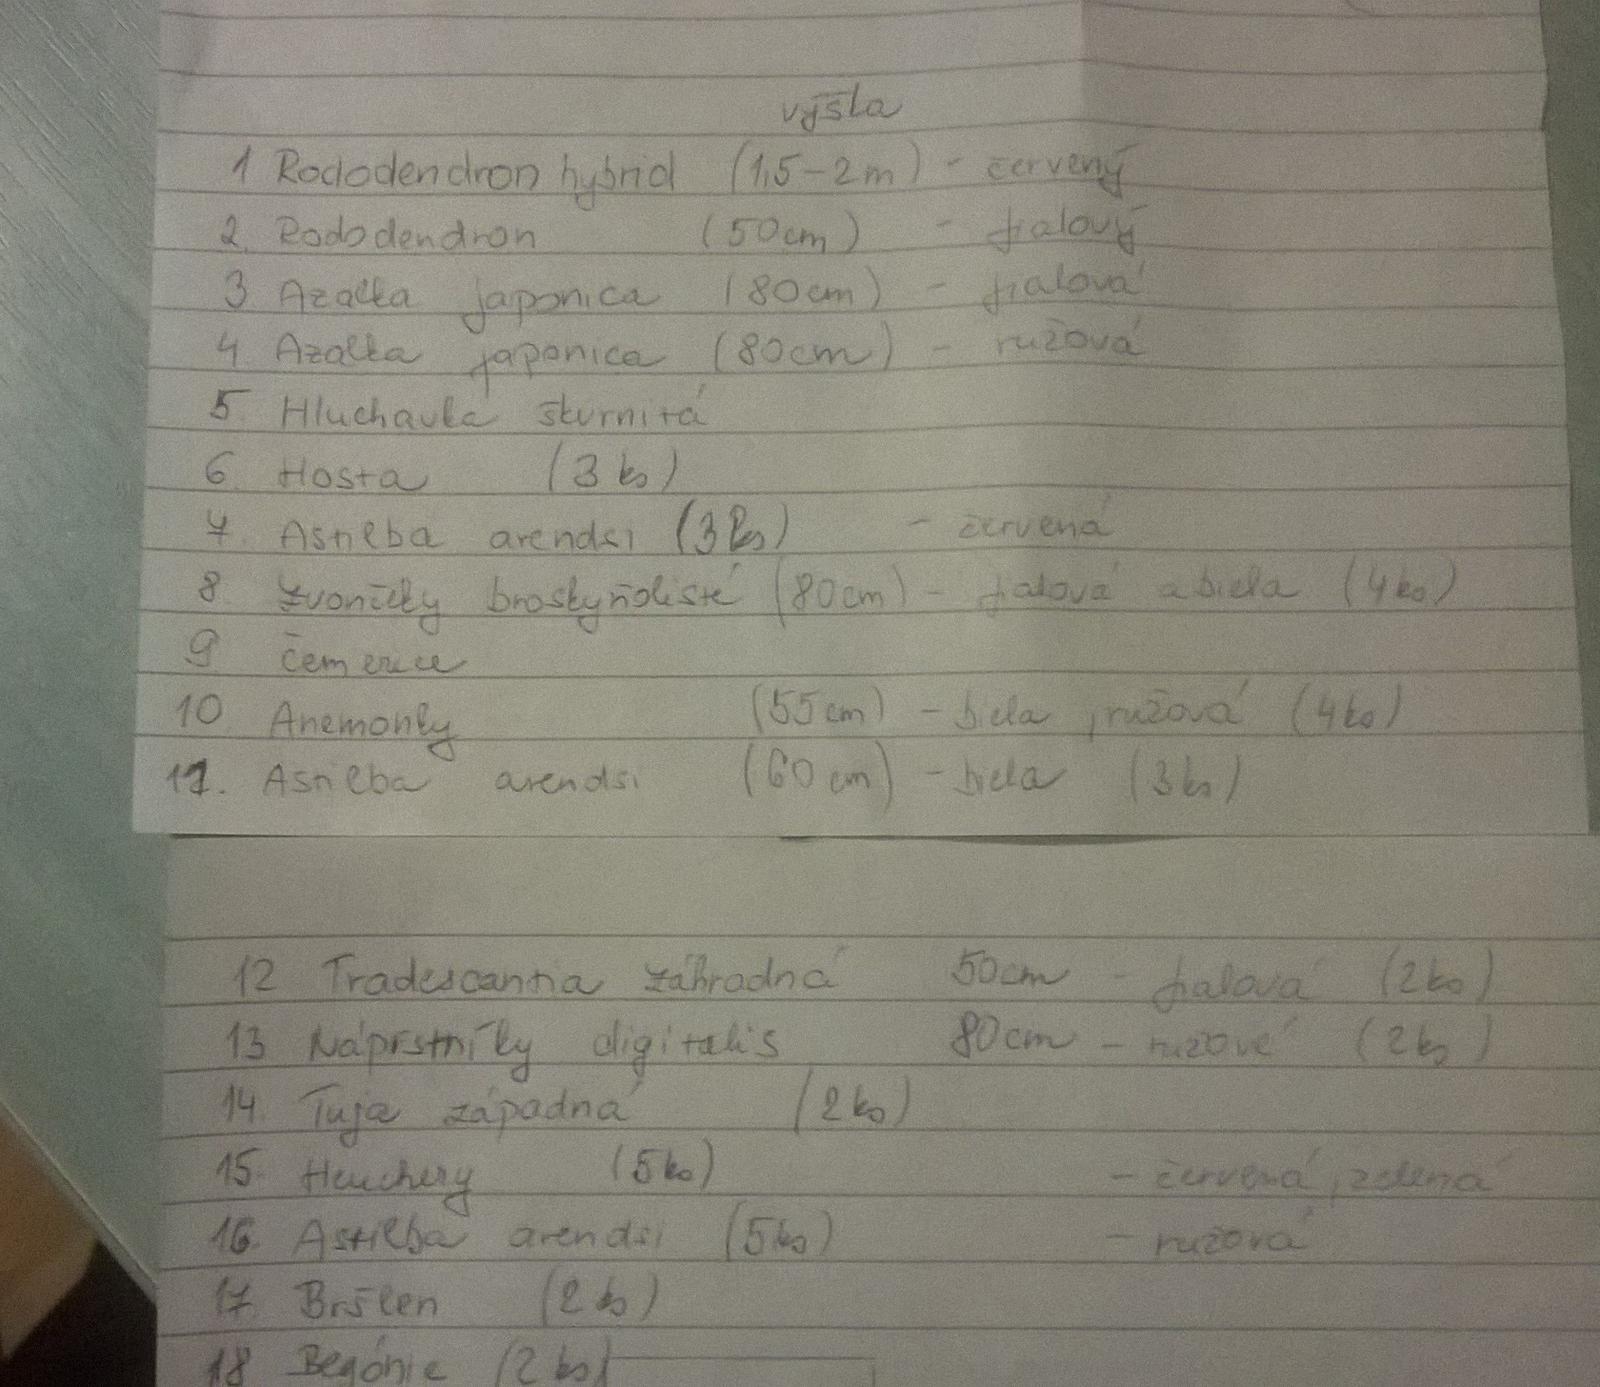 výška
1 Rododendron hybrid (1,5-2m) - červený
2. Rododendron (50cm) - fialový
3 Azalka japonica (80cm) - fialová
4. Azalka japonica (80cm) - ružová
5. Hluchavka škvrnitá
6. Hosta (3 ks)
7. Astilba arendsi (3ks) - červená
8. Zvončeky broskyňolisté (80cm) - fialová a biela (4ks)
9 čemerice
10 Anemonky (55cm) - biela, ružová (4ks)
11. Astilba arendsi (60cm) - biela (3ks)
12 Tradescantia záhradná 50cm - fialová (2ks)
13 Náprstníky digitalis 80cm - ružové (2ks)
14. Tuja západná (2ks)
15. Heuchery (5ks) - červená, zelená
16. Astilba arendsi (5ks) - ružová
17. Bršlen (2ks)
18 Begónie (2ks)